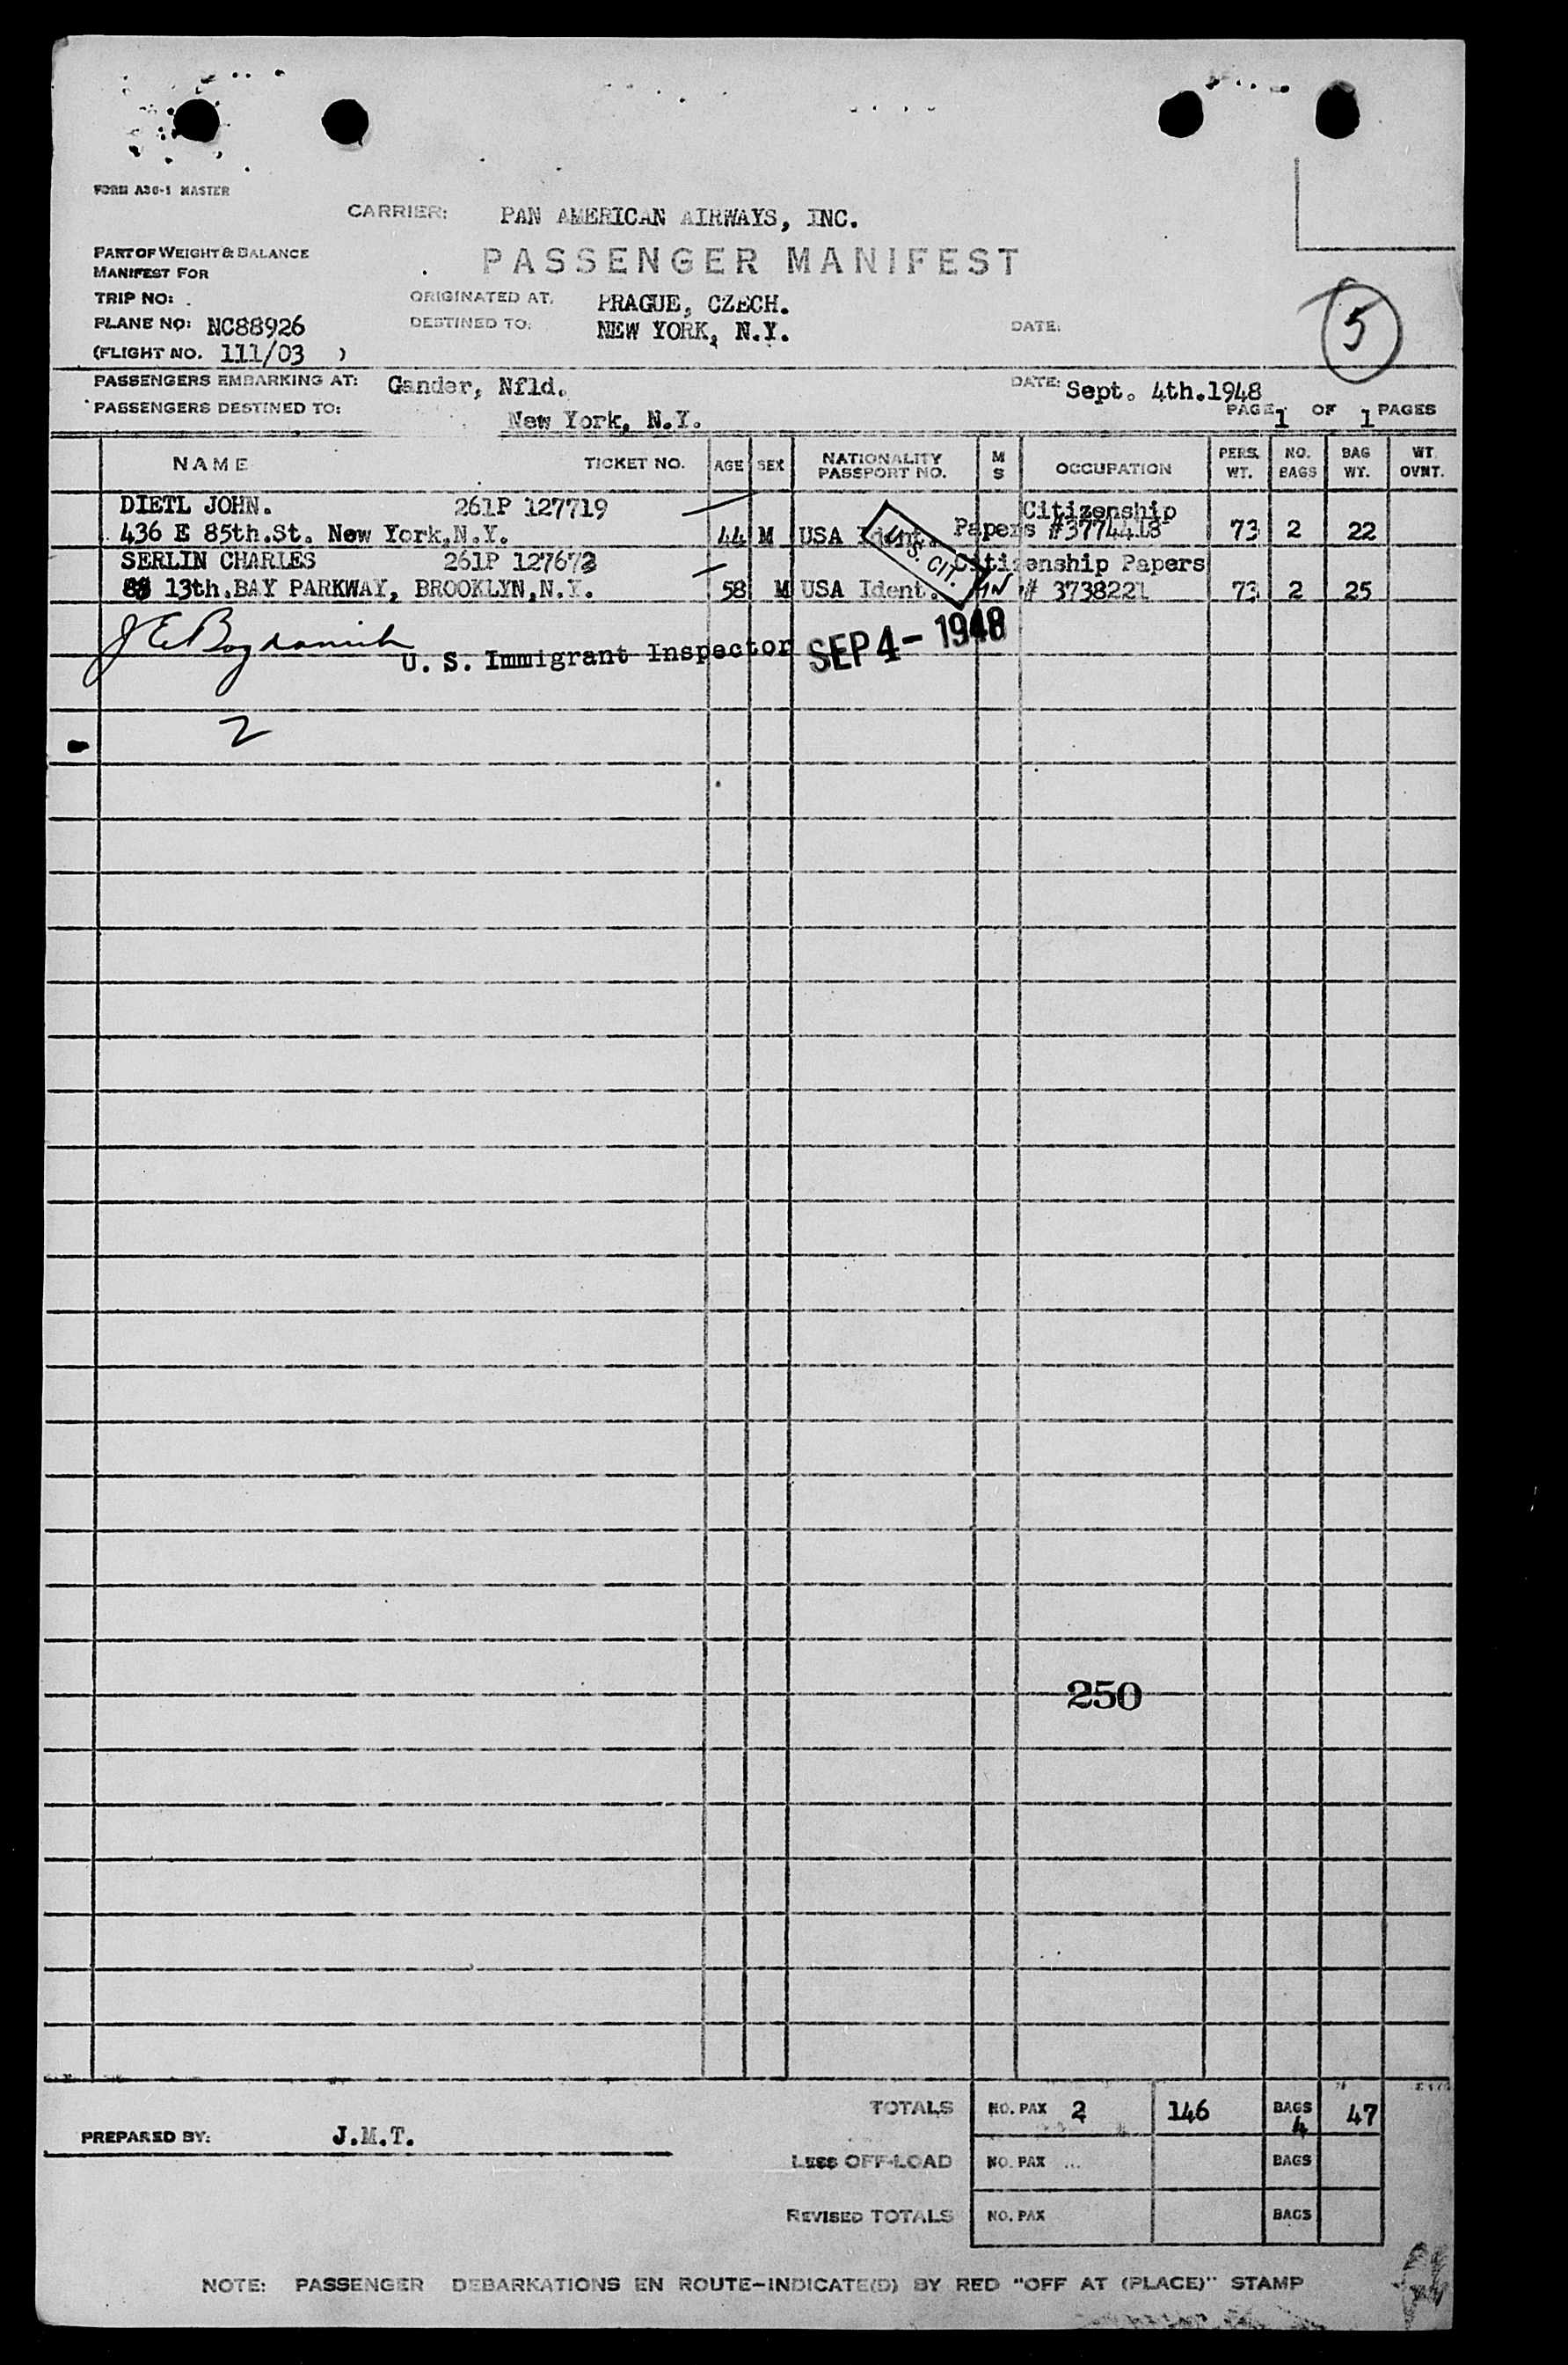 FORM A30-1 MASTER
CARRIER: PAN AMERICAN AIRWAYS, INC.
PART OF WEIGHT & BALANCE
MANIFEST FOR
PASSENGER MANIFEST
TRIP NO:
ORIGINATED AT. PRAGUE, CZECH.
PLANE NO: NC88926
DESTINED TO: NEW YORK, N.Y.
DATE:
5
(FLIGHT NO. 111/03 )
PASSENGERS EMBARKING AT: Gander, Nfld.
DATE: Sept. 4th.1948
PASSENGERS DESTINED TO: New York, N.Y.
PAGE 1 OF 1 PAGES
NAME TICKET NO. AGE SEX NATIONALITY PASSPORT NO. M S OCCUPATION PERS. WT. NO. BAGS BAG WT. WT. OVNT.
DIETL JOHN. 261P 127719 Citizenship
436 E 85th.St. New York,N.Y. 44 M USA Ident. Papers #3774418 73 2 22
U.S. CIT.
SERLIN CHARLES 261P 127673 Citizenship Papers
13th.BAY PARKWAY, BROOKLYN,N.Y. 58 M USA Ident. # 3738221 73 2 25
U. S. Immigrant Inspector SEP 4 - 1948
2
250
TOTALS NO. PAX 2 146 BAGS 4 47
PREPARED BY: J.M.T.
LESS OFF-LOAD NO. PAX ... BAGS
REVISED TOTALS NO. PAX BAGS
NOTE: PASSENGER DEBARKATIONS EN ROUTE-INDICATE(D) BY RED "OFF AT (PLACE)" STAMP